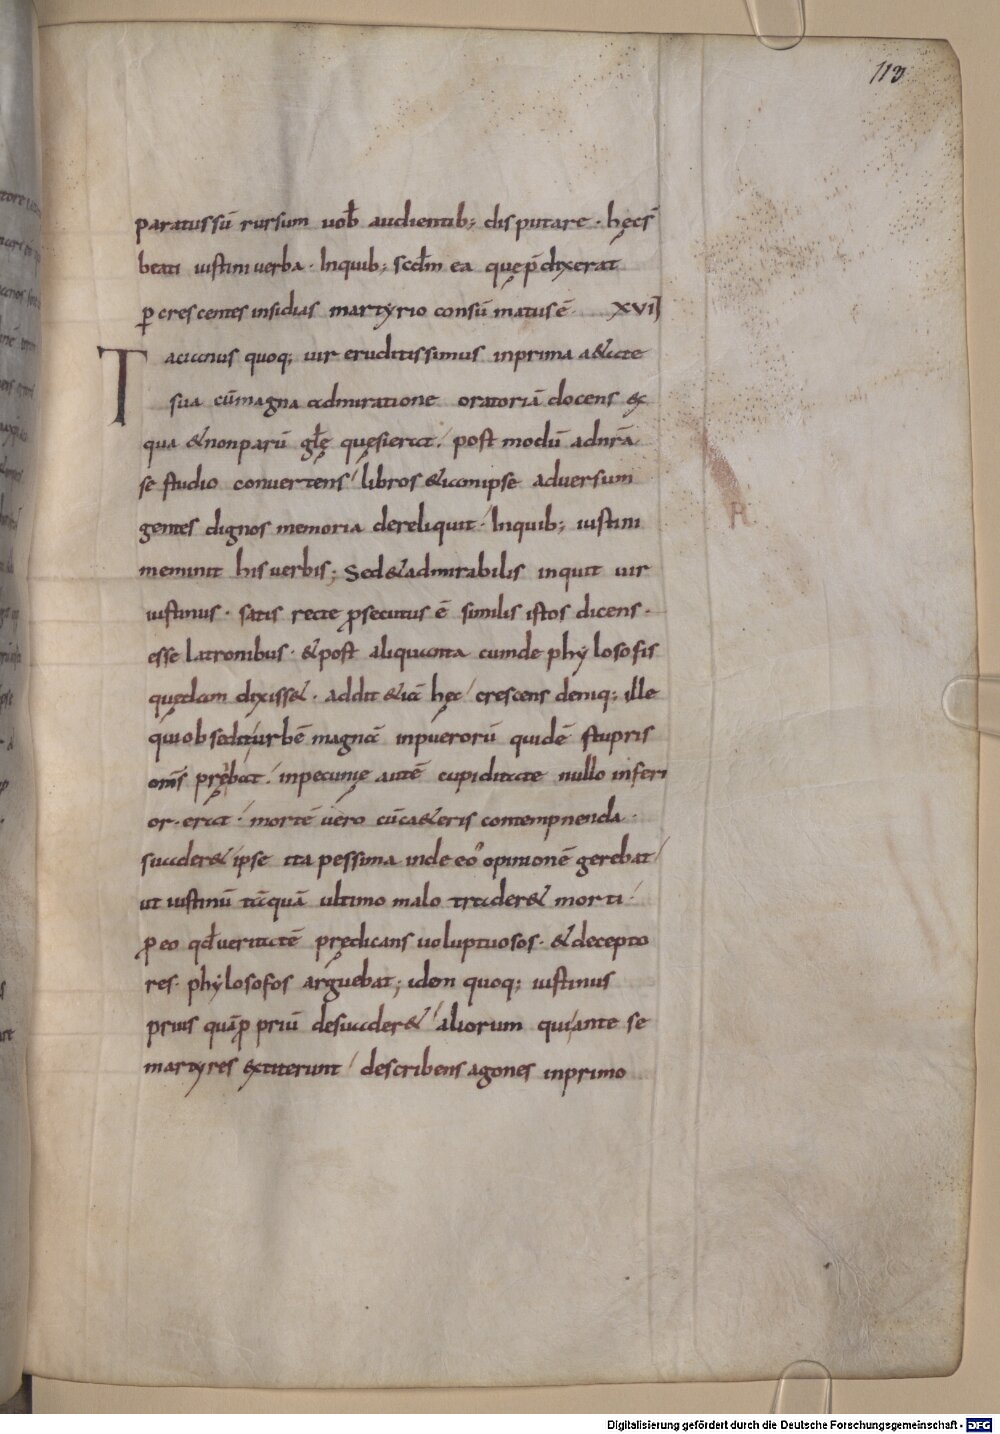 113
paratussū rursum uob̄ audientib; disputare · hęcs̄
beati iustini uerba · Inquib; scdm̄ ea quęp̄dixerat
ꝑ crescentes insidias martyrio consūmatus ē XVI
Tacianus quoq; uir eruditissimus inprima a&ate
sua cūmagna admiratione oratoriā docens ex
qua &nonparū gl̄ę quęsierat / post modū adnr̄ā
se studio conuertens / libros &iamipse aduersum
gentes dignos memoria dereliquit · Inquib; iustini
meminit his uerbis; Sed&admirabilis inquit uir
iustinus · satis recte ꝓsecutus ē similis istos dicens ·
esse latronibus · &post aliquanta cumde phylosofis
quędam dixiss& · addit &iā hęc / crescens deniq; ille
quiobsedit/urbē magnā inpuerorū quidē stupris
om̄s pręibat / inpecunię autē cupiditate nullo inferi
or · erat / mortē uero cūca&eris contempnenda ·
suader& ipse ita pessima inde eo opinionē gerebat /
ut iustinū tāquā ultimo malo trader& morti /
ꝓ eo qd̄ueritatē prędicans uoluptuosos · &decepto
res · phylosofos arguebat; idem quoq; iustinus
prius quāꝓpriū desuader& / aliorum qui/ante se
martyres extiterunt / describens agones inprimo
Digitalisierung gefördert durch die Deutsche Forschungsgemeinschaft - DFG